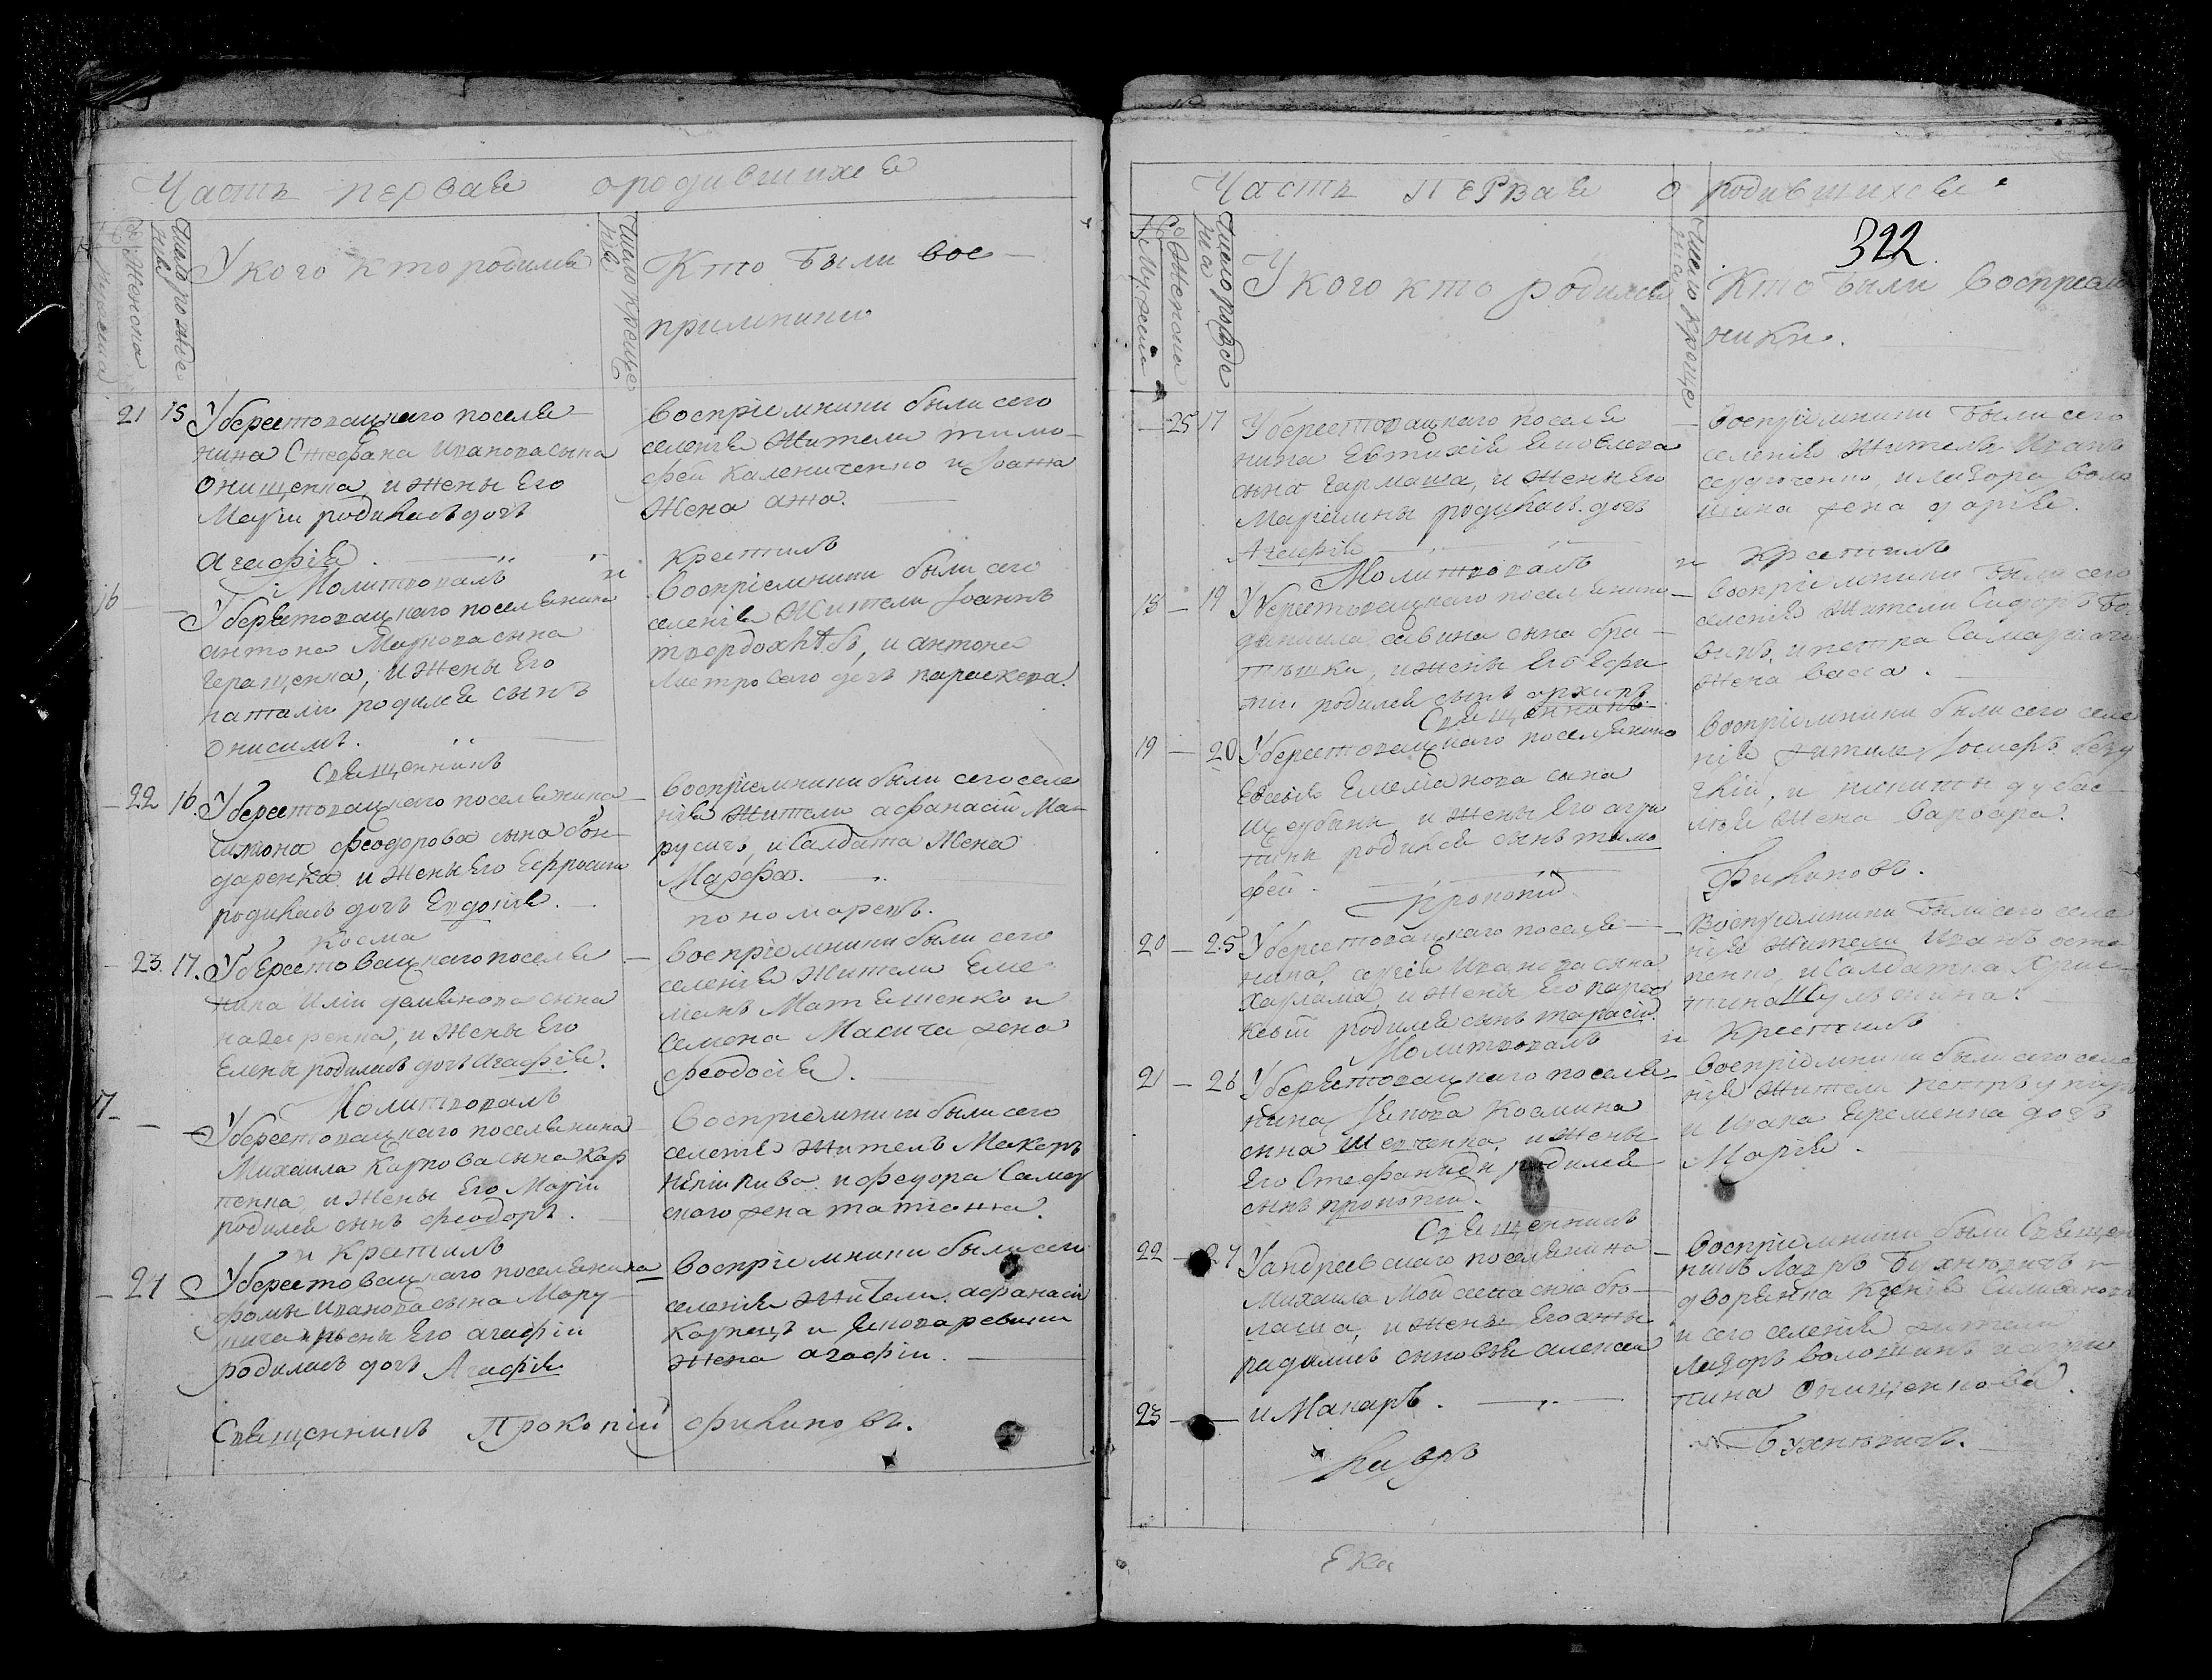 Часть первая о родившихся
Число рожде
нія
У кого кто родился
Число креще
нія
Кто были вос-
пріемники
21 15 У берестовацкаго поселя-
нина Стефана Иванова сына
Онищенка, и жены Его
Маріи родилась дочь
Агафія.
Воспріемники были сего
селенія жители тимо-
фей калениченко и
жена
Молитвовалъ и крестилъ
16 — У берестовацкаго поселянина
антона Маркова сына
Геращенка, и жены Его
натали родился сынъ
Онисимъ.
Воспріемники были сего
селенія жители Іоаннъ
твердохлѣбъ, и антона
дочь параскева.
Священникъ
22 16. У берестовацкаго поселянина
Симона феодорова сына бон-
даренка и жены Его Ефросини
родилась дочь Евдокія.
Воспріемники были сего селе
нія жители афанасій Ма-
русичъ, и Салдата Жена
Марфа.
Косма пономаревъ.
23. 17. У берестовацкаго поселя
нина Иліи сына
и жены Его
Елены родилась дочь Агафія.
Воспріемники были сего
селенія жители Еме-
лянъ Матяшенко и
Семена Масича жена
феодосія.
Молитвовалъ
17 — У берестовацкаго поселянина
Михаила Карпова сына Кар
пенка, и жены Его Маріи
родился сынъ феодоръ.
Воспріемники были сего
селенія житель Макаръ
и федора Самар
скаго жена татіанна.
и Крестилъ
24 У берестовацкаго поселянина
фомы Иванова сына Мару
сича и жены Его агафіи
родилась дочь Агафія
Воспріемники были сего
селенія жители афанасій
Карпецъ и
жена агафіи.
Священникъ Прокопій филиповъ.
Часть первая о родившихся
322
Число рожде
нія
У кого кто родился
Число креще
нія
Кто были воспріем
ники.
25 17 У берестовацкаго поселя
нина Евтихія Яковлева
сына Гармаша, и жены Его
Маріанны родилась дочь
Агафія
Воспріемники были сего
селенія житель Иванъ
сердюченко, и Лазора воло
шина жена дарія.
Молитвовалъ и Крестилъ
18 — 19 У берестовацкаго поселянина
даніила савина сына бра-
тышки, и жены Его
родился сынъ архипъ
Воспріемники были сего
селенія жители Сидоръ
и петра Самарскаго
жена васса.
Священникъ
19 — 20 У берестовацкаго поселянина
Евсевія Емеліанова сына
Щербины, и жены Его агри
пины родился сынъ тимо
фей.
Воспріемники были сего селе
нія жители Іосифъ
и никиты дубас-
жена варвара.
Прокопій филиповъ.
20 — 25 У берестовацкаго поселя
нина, сергія Иванова сына
Харлама, и жены Его парас
кевіи родился сынъ тарасій.
Воспріемники были сего селе
нія жители Иванъ оста
пенко, и Салдатка Хрис-
тина Шульжина.
Молитвовалъ и Крестилъ
21 — 26 У берестовацкаго поселя-
нина Іакова Космина
сына Шевченка, и жены
Его Стефаниды родился
сынъ прокопій.
Воспріемники были сего селе
нія жители петръ
и Ивана Еременка дочь
Марія.
Священникъ
22 — 27 У андреевскаго поселянина
Михаила Мойсеева сына бѣ-
лаша, и жены Его анны
радились сыновья алексей
23 — и Макаръ.
Воспріемники были Священ
никъ Лавръ Бухнѣвичъ и
дворянка Ксенія
и сего селенія жители
Лазоръ волошинъ и агри
пина Онищенкова.
Лавръ Бухнѣвичъ.
Ека